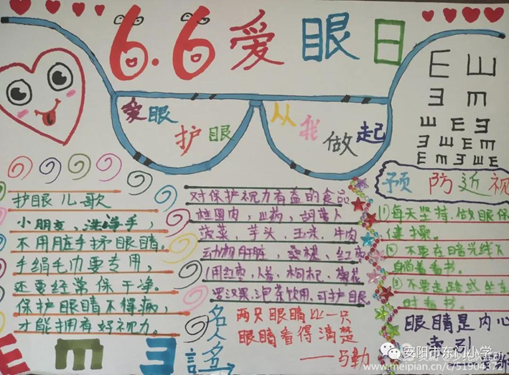 6.6爱眼日
爱眼
护眼
从我
做起
E E
E m
预防近视
护眼儿歌
小朋友,洗净手,
不用脏手揉眼睛。
手绢毛巾要专用,
还要经常保干净。
保护眼睛不得病,
才能拥有好视力。
对保护视力有益的食品
桂圆肉、山药、胡萝卜
菠菜、芋头、玉米、牛肉
动物肝脏、桑椹、红
用红枣、枸杞
泡茶饮用,可护眼
名人名言
两只眼睛比一只
眼睛看得清楚
①每天坚持做眼保
健操。
②不要在暗光线下
躺着看书。
③不要走路或坐车
时看书。
眼睛是内心
索引
E m
安阳市东门小学
www.meipian.cn